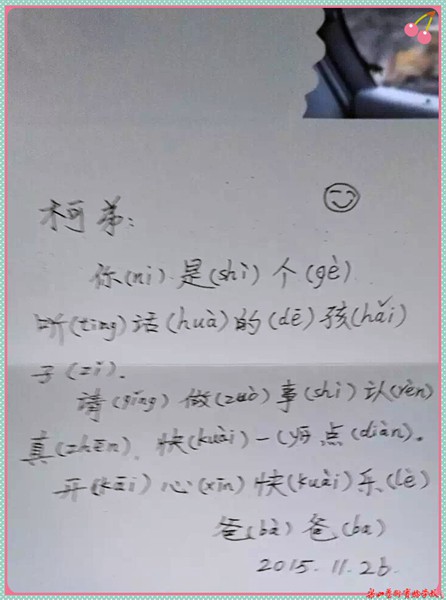 柯弟:
你(ni)是(shì)个(gè)
听(ting)话(huà)的(dē)孩(hǎi)
子(zǐ).
请(qǐng)做(zuò)事(shì)认(rèn)
真(zhēn). 快(kuài)一(yī)点(diǎn)。
开(kāi)心(xīn)快(kuài)乐(lè)
爸(bà)爸(ba)
2015.11.26.